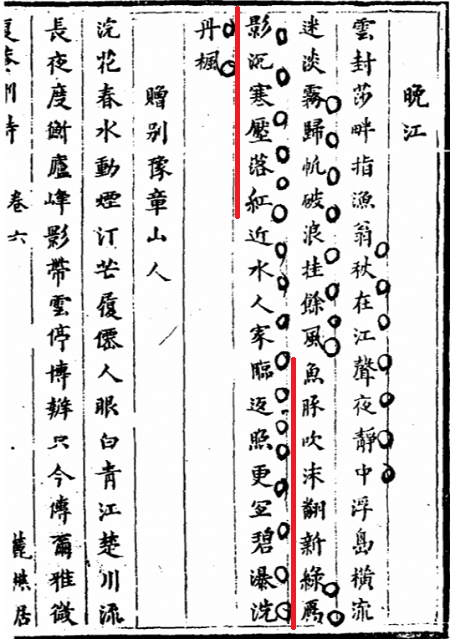 晚江
雲封莎畔指漁翁秋在江聲夜靜中浮島橫流
迷淡霧歸帆破浪挂餘風魚豚吹沫翻新綠鴈
影沉寒壓落紅近水人家臨返照更宜碧瀑洗
丹楓
贈别豫章山人
浣花春水動煙汀芒履僊人眼白青江楚川流
長夜度衡廬峰影帶雲停博辨只今傳爾雅微
卷六
居